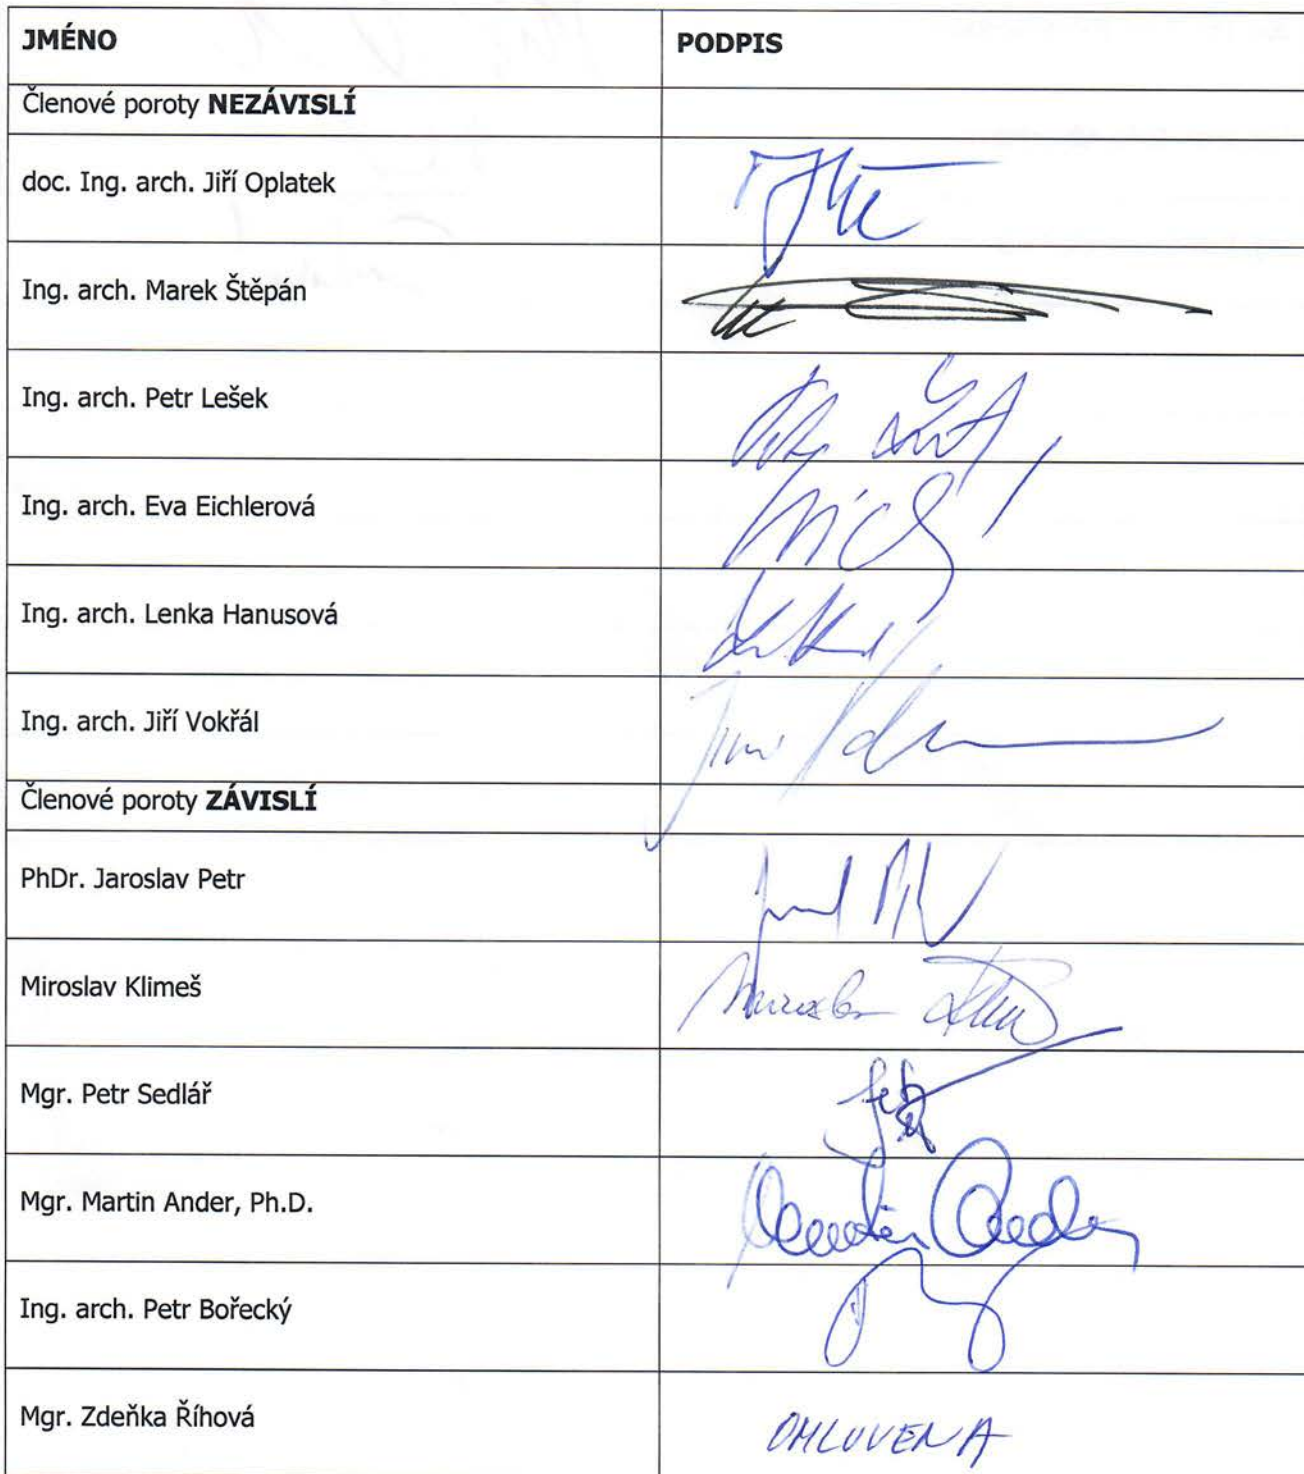 JMÉNO PODPIS
Členové poroty NEZÁVISLÍ
doc. Ing. arch. Jiří Oplatek
Ing. arch. Marek Štěpán
Ing. arch. Petr Lešek
Ing. arch. Eva Eichlerová
Ing. arch. Lenka Hanusová
Ing. arch. Jiří Vokřál
Členové poroty ZÁVISLÍ
PhDr. Jaroslav Petr
Miroslav Klimeš
Mgr. Petr Sedlář
Mgr. Martin Ander, Ph.D.
Ing. arch. Petr Bořecký
Mgr. Zdeňka Říhová OMLUVENA